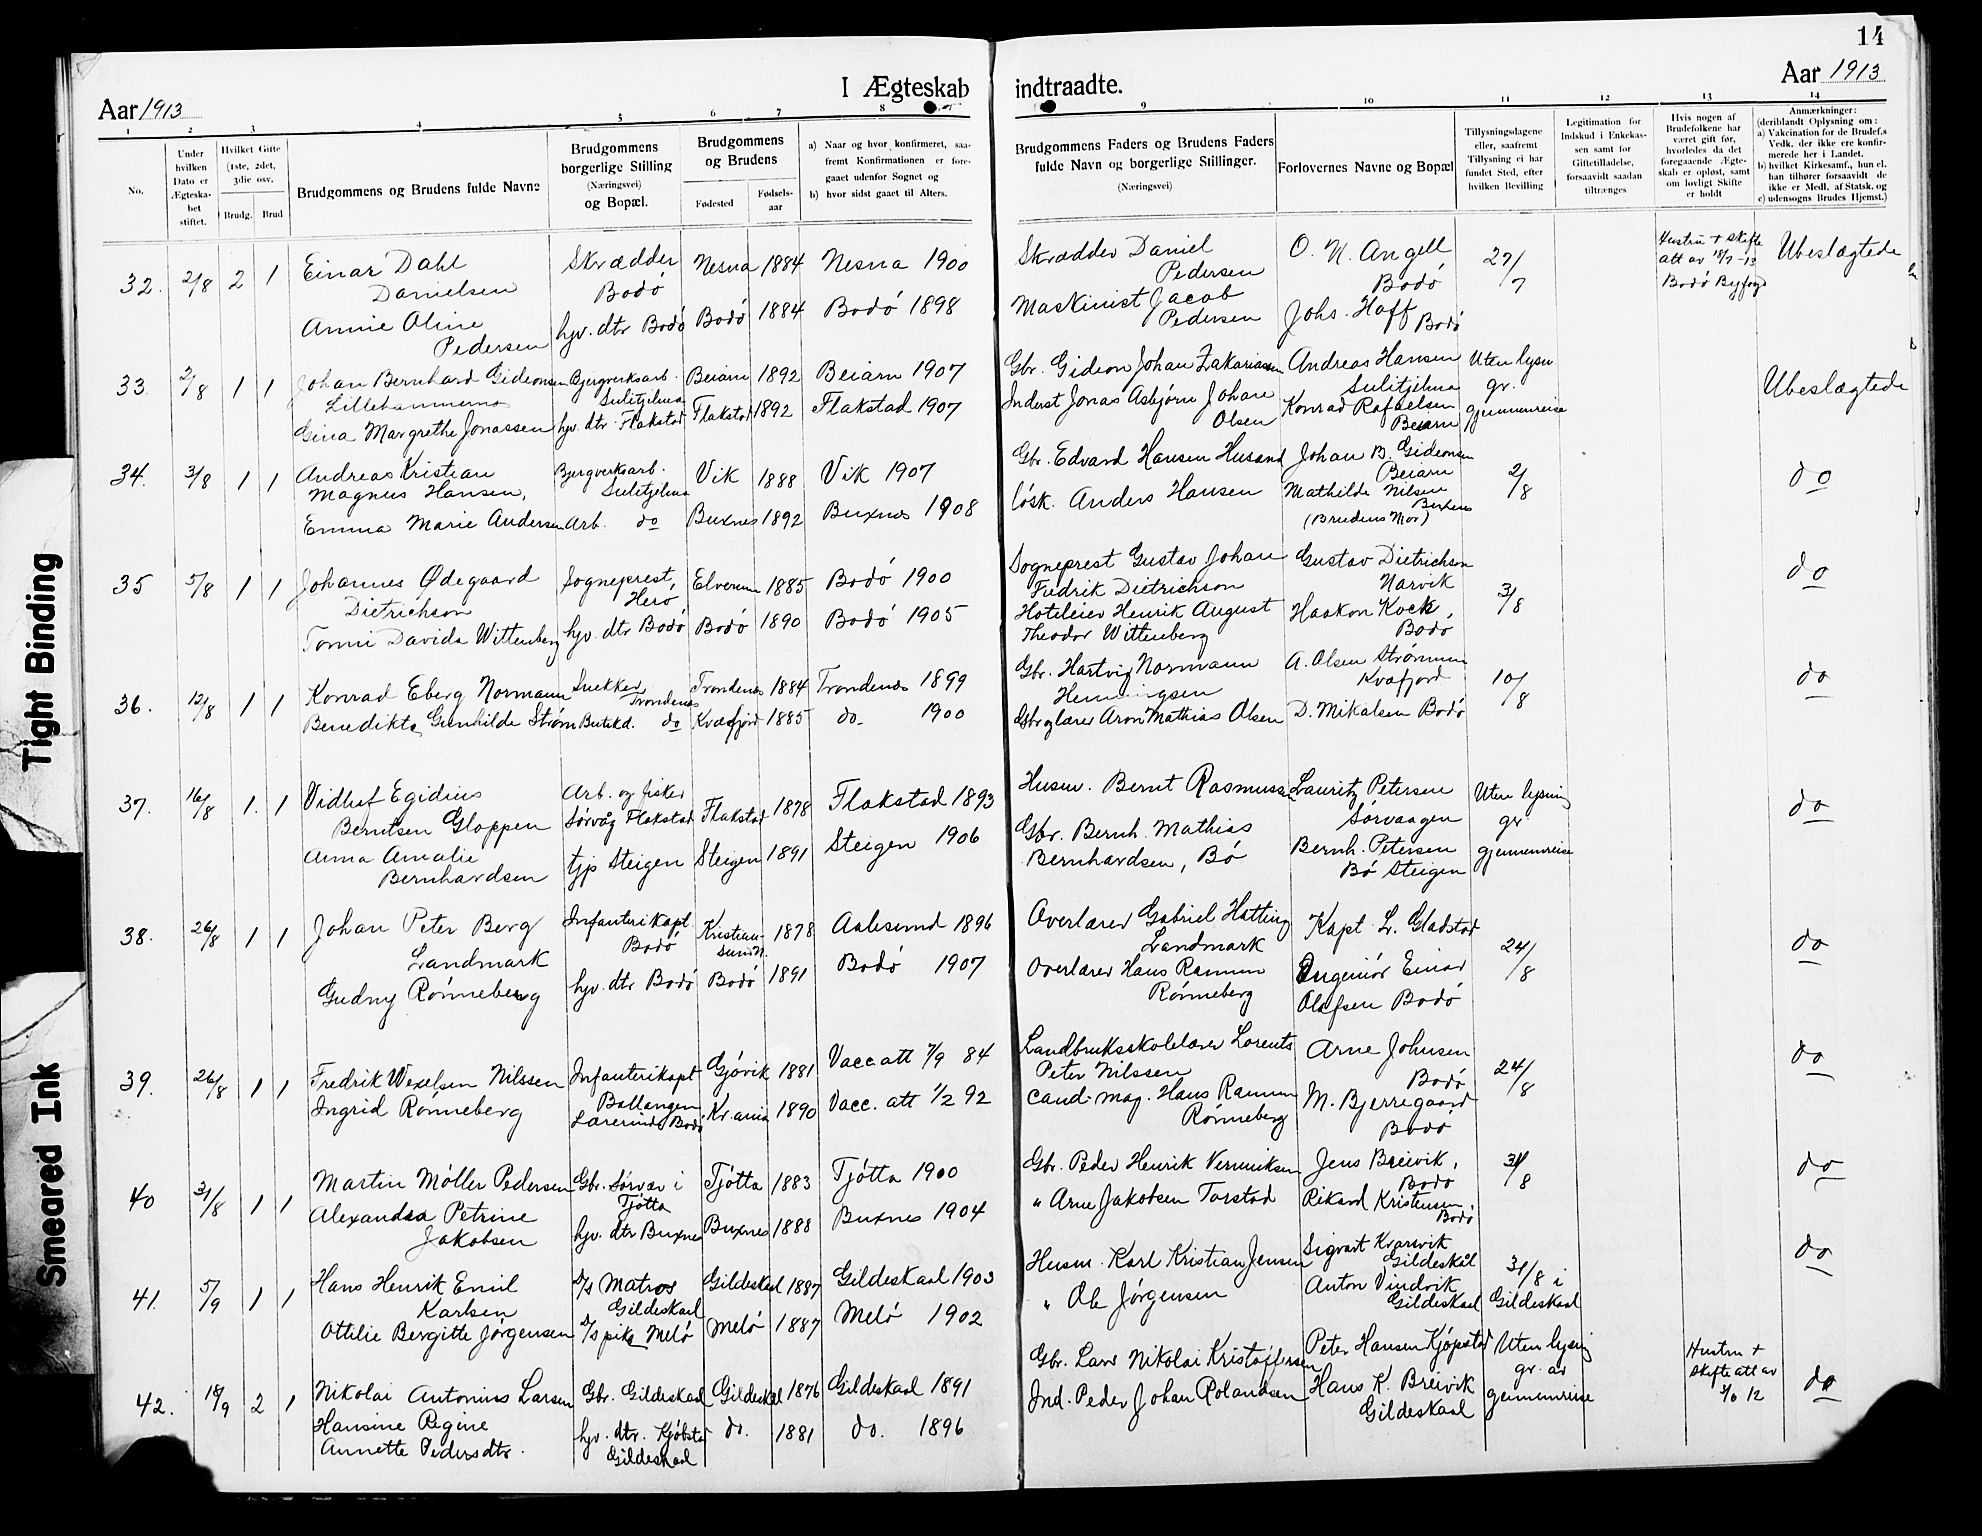 14
I Ægteskab indtraadte.
Aar 1913
Aar 1913
1 2 3 4 5 6 7 8 9 10 11 12 13 14
No.
Under
hvilken
Dato er
Ægteska-
bet
stiftet.
Hvilket Gifte
(1ste, 2det,
3die osv.
Brudg. Brud
Brudgommens og Brudens fulde Navne
Brudgommens
borgerlige Stilling
(Næringsvei)
og Bopæl.
Brudgommens
og Brudens
Fødested
Fødsels-
aar
a) Naar og hvor konfirmeret, saa-
fremt Konfirmationen er fore-
gaaet udenfor Sognet og
b) hvor sidst gaaet til Alters.
Brudgommens Faders og Brudens Faders
fulde Navn og borgerlige Stillinger.
(Næringsvei)
Forlovernes Navne og Bopæl
Tillysningsdagene
eller, saafremt
Tillysning ei har
fundet Sted, efter
hvilken Bevilling
Legitimation for
Indskud i Enkekas-
sen samt for
Giftetilladelse,
forsaavidt saadan
tiltrænges
Hvis nogen af
Brudefolkene har
været gift før,
hvorledes da det
foregaaende Ægte-
skab er opløst, samt
om lovligt Skifte
er holdt
Anmærkninger:
(deriblandt Oplysning om:
a) Vakcination for de Brudef.s
Vedk. der ikke ere konfir-
merede her i Landet.
b) hvilket Kirkesamf., hun el.
han tilhører forsaavidt de
ikke er Medl. af Statsk. og
c) udensogns Brudes Hjemst.)
32. 2/8 2 1.
Einar Dahl
Danielsen
Skrædder
Bodó
Nesna 1884 Nesna 1900
Skrædder Daniel
Pedersen
O. N. Angell
Bodó
27/7
Hustru + Skifte
att av 18/7-13
Bodó Byfogd
Ubeslægtede
Annie Oline
Pedersen
hjv. dtr Bodó Bodó 1884 Bodó 1898
Maskinist Jacob
Pedersen
Johs. Hoff
Bodó
33. 2/8 1 1
Johan Bernhard Gideonsen
Lillehammernes
Bjergverksarb.
Sulitjelma
Beiarn 1892 Beiarn 1907
Gbr. Gideon Johan Zakariassen
Andreas Hansen
Sulitjelma
Uten lysn
gr.
gjennemreise
Ubeslægtede
Gina Margrethe Jonassen hjv. dtr. Flakstad Flakstad 1892 Flakstad 1907
Inderst Jonas Asbjørn Johan
Olsen
Konrad Rafaelsen
Beiarn
34. 3/8 1 1
Andreas Kristian
Magnus Hansen,
Bjergverksarb.
Sulitjelma
Vik 1888 Vik 1907
Gbr. Edvard Hansen Husand
Johan B. Gideonsen
Beiarn
2/8
do
Emma Marie Andersen Arb. do Buxnes 1892 Buxnes 1908
lósk. Anders Hansen
Mathilde Nilsen
Buxnes
(Brudens Mor)
35 5/8 1 1
Johannes Ødegaard
Dietrichson
Sogneprest,
Heró
Elverum 1885 Bodó 1900
Sogneprest Gustav Johan
Fredrik Dietrichson
Gustav Dietrichson
Narvik
3/8
do
Tomi Davida Wittenberg hjv. dtr Bodó Bodó 1890 Bodó 1905
Hoteleier Henrik August
Theodor Wittenberg
Haakon Koch,
Bodó
36. 12/8 1 1
Konrad Eberg Normann
Snekker
Trondenes
Trondenes 1884 Trondenes 1899
Gbr. Hartvig Normann
Henningsen
A. Olsen Strømmen
Kvæfjord
10/8
do
Benedikte Gunhilde Strøm Butikd. do Kvæfjord 1885 do. 1900
Gbr og lærer Aron Mathias Olsen D. Mikalsen Bodó
37. 16/8 1. 1
Vidluf Egidius
Berntsen Gloppen
Arb. og fisker
Sørvåg Flakstad
Flakstad 1878 Flakstad 1893
Husm. Bernt Rasmussen
Lauritz Petersen
Sørvaagen
Uten lysning
gr.
gjennemreise
do
Anna Amalie
Bernhardsen
tjp Steigen Steigen 1891 Steigen 1906
Gbr. Bernh. Mathias
Bernhardsen, Bó
Bernh. Petersen
Bó Steigen
38. 26/8 1 1
Johan Peter Berg
Landmark
Infanterikapt
Bodó
Kristian-
sund N. 1878 Aalesund 1896
Overlærer Gabriel Hatting
Landmark
Kapt. L. Gladstad
24/8
do
Gudny Rónneberg hjv. dtr Bodó Bodó 1891 Bodó 1907
Overlærer Hans Ramm
Rónneberg
Ingeniór Einar
Olafsen Bodó
39. 26/8 1 1
Fredrik Wexelsen Nilssen
Infanterikapt
Ballangen
Gjóvik 1881 Vacc att 7/9 84
Landbruksskolelærer Lorents
Peter Nilssen
Arne Johnsen
Bodó
24/8
do
Ingrid Rónneberg Lærerinde Bodó Kr.ania 1890 Vacc. att 1/2 92
cand. mag. Hans Ramm
Rónneberg
M. Bjerregaard
Bodó
40 31/8 1 1
Martin Móller Pedersen
Gbr. Sørvær i
Tjótta
Tjótta 1883 Tjótta 1900
Gbr. Peder Henrik Verniksen
Jens Breivik,
Bodó
31/8
do
Alexandra Petrine
Jakobsen
hjv. dtr Buxnes Buxnes 1888 Buxnes 1904
" Arne Jakobsen Torstad
Rikard Kristensen,
Bodó
41. 5/9 1 1
Hans Henrik Emil
Karlsen
D/s Matros
Gildeskaal
Gildeskaal 1887 Gildeskaal 1903
Husm. Karl Kristian Jensen
Sigvart Kvarsvik
Gildeskål
31/8 i
Gildeskaal
do
Ottilie Bergitte Jórgensen D/s pike Meló Meló 1887 Meló 1902
" Ole Jórgensen
Anton Vindvik
Gildeskaal
42. 18/9 2 1
Nikolai Antonius Larsen Gbr. Gildeskaal Gildeskål 1876 Gildeskaal 1891
Gbr. Lars Nikolai Kristoffersen
Peter Hansen Kjópstad
Uten lysing
gr. av
gjennemreise
Hustru +
Skifte att av
12
do
Hansine Regine
Annette Pedersdtr.
hjv. dtr. Kjóbstad
Gildeskaal
do. 1881 do. 1896
Ind. Peder Johan Rolandsen
Hans K. Breivik
Gildeskaal
Tight Binding
Smeared Ink